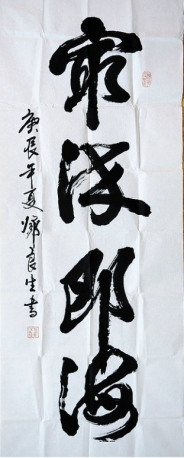 最深即海
庚辰年夏 良生書